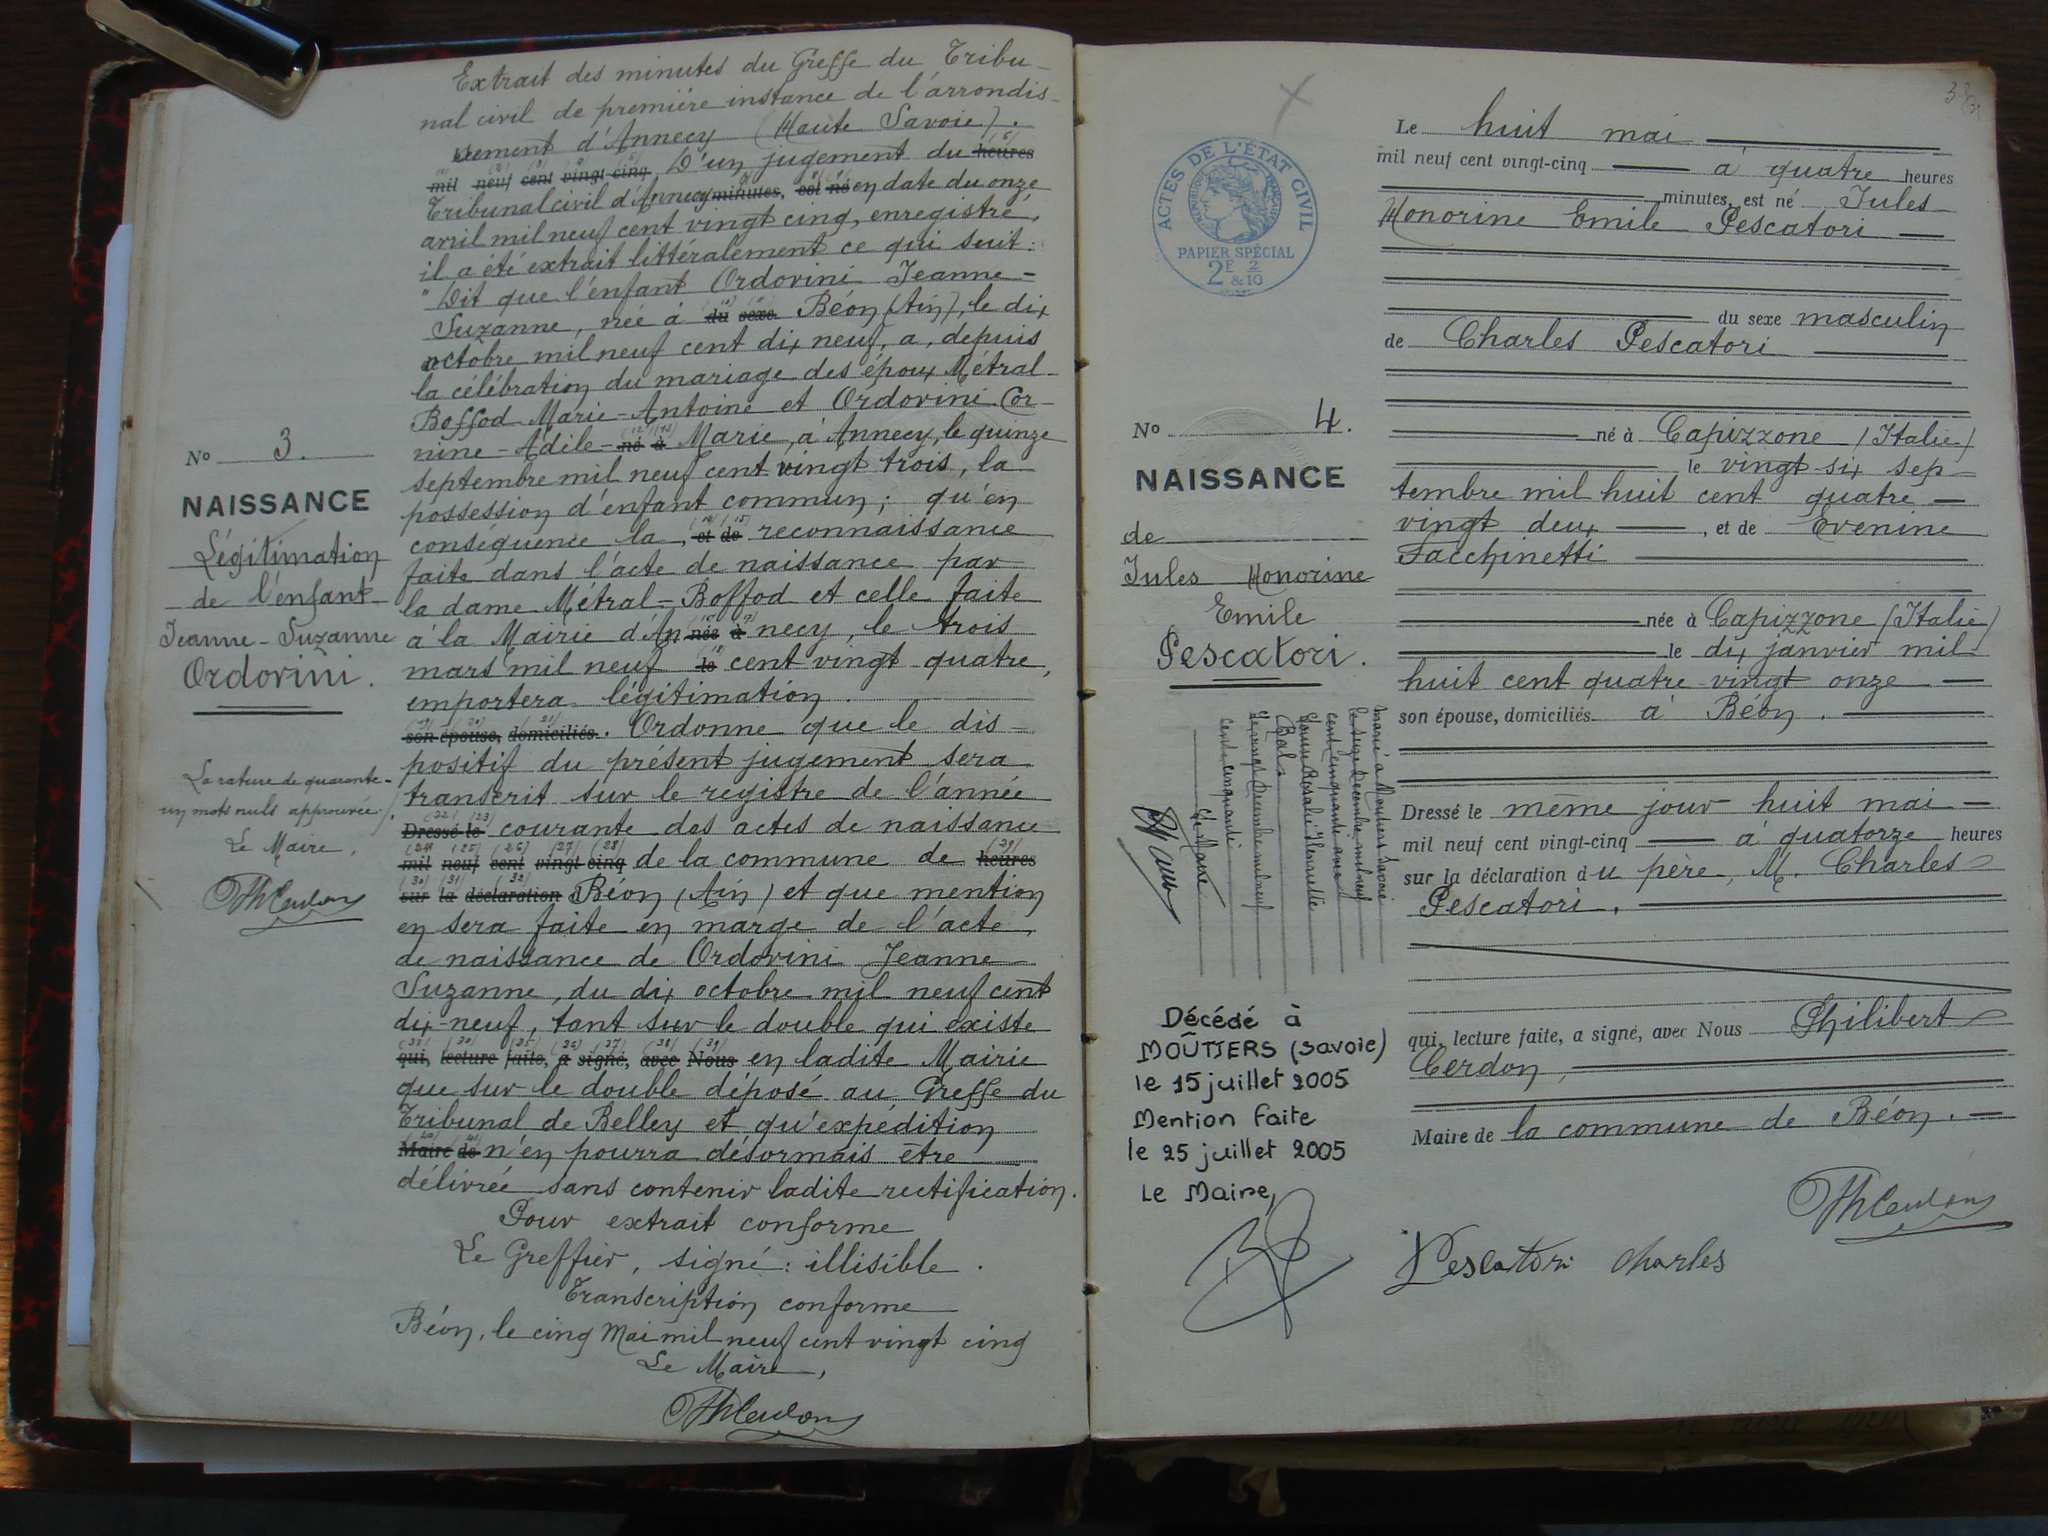 Extrait des minutes du Greffe du Tribu-
nal civil de première instance de l'arrondis-
sement d'Annecy (Haute Savoie).
mil neuf cent vingt-cinq D'un jugement du heures
Tribunal civil d'Annecy minutes, est né en date du onze
avril mil neuf cent vingt cinq, enregistré,
il a été extrait littéralement ce qui suit:
"Dit que l'enfant Ordovini Jeanne-
Suzanne, née à du sexe Béon (Ain), le dix
octobre mil neuf cent dix neuf, a, depuis
la célébration du mariage des époux Métral-
Boffod Marie-Antoine et Ordovini Cor-
nine-Adèle- né à Marie, à Annecy, le quinze
septembre mil neuf cent vingt trois, la
possession d'enfant commun; qu'en
conséquence la, et de reconnaissance
faite dans l'acte de naissance par
la dame Métral-Boffod et celle faite
à la Mairie d'An née à necy, le trois
mars mil neuf le cent vingt quatre,
emportera légitimation.
son épouse, domiciliés. Ordonne que le dis-
positif du présent jugement sera
transcrit sur le registre de l'année
Dressé le courante des actes de naissance
mil neuf cent vingt-cinq de la commune de heures
sur la déclaration Béon (Ain) et que mention
en sera faite en marge de l'acte
de naissance de Ordovini Jeanne
Suzanne, du dix octobre mil neuf cent
dix-neuf, tant sur le double qui existe
qui, lecture faite, a signé, avec Nous en ladite Mairie
que sur le double déposé au Greffe du
Tribunal de Belley et qu'expédition
Maire de n'en pourra désormais être
délivrée sans contenir ladite rectification.
Pour extrait conforme
Le Greffier, signé: illisible.
Transcription conforme
Béon, le cinq Mai mil neuf cent vingt cinq
Le Maire,
No 3.
NAISSANCE
Légitimation
de l'enfant
Jeanne-Suzanne
Ordovini.
La rature de quarante-
un mots nuls approuvée.
Le Maire,
ACTES DE L'ÉTAT CIVIL
PAPIER SPÉCIAL
2F 2
&10
No 4.
NAISSANCE
de
Jules Honorine
Emile
Pescatori.
Marié à Moutiers Savoie
le seize Décembre mil neuf
cent cinquante avec
Louise Rosalie Henriette
le Maire
Décédé à
MOUTIERS (Savoie)
le 15 juillet 2005
Mention faite
le 25 juillet 2005
Le Maire,
Le huit mai
mil neuf cent vingt-cinq à quatre heures
minutes, est né Jules
Honorine Emile Pescatori
du sexe masculin
de Charles Pescatori
né à Capizzone (Italie)
le vingt-six sep-
tembre mil huit cent quatre
vingt deux, et de Evenine
Facchinetti
née à Capizzone (Italie)
le dix janvier mil
huit cent quatre-vingt onze
son épouse, domiciliés à Béon.
Dressé le même jour huit mai
mil neuf cent vingt-cinq à quatorze heures
sur la déclaration du père, M. Charles
Pescatori.
qui, lecture faite, a signé, avec Nous Philibert
Cerdon,
Maire de la commune de Béon.
Pescatori Charles